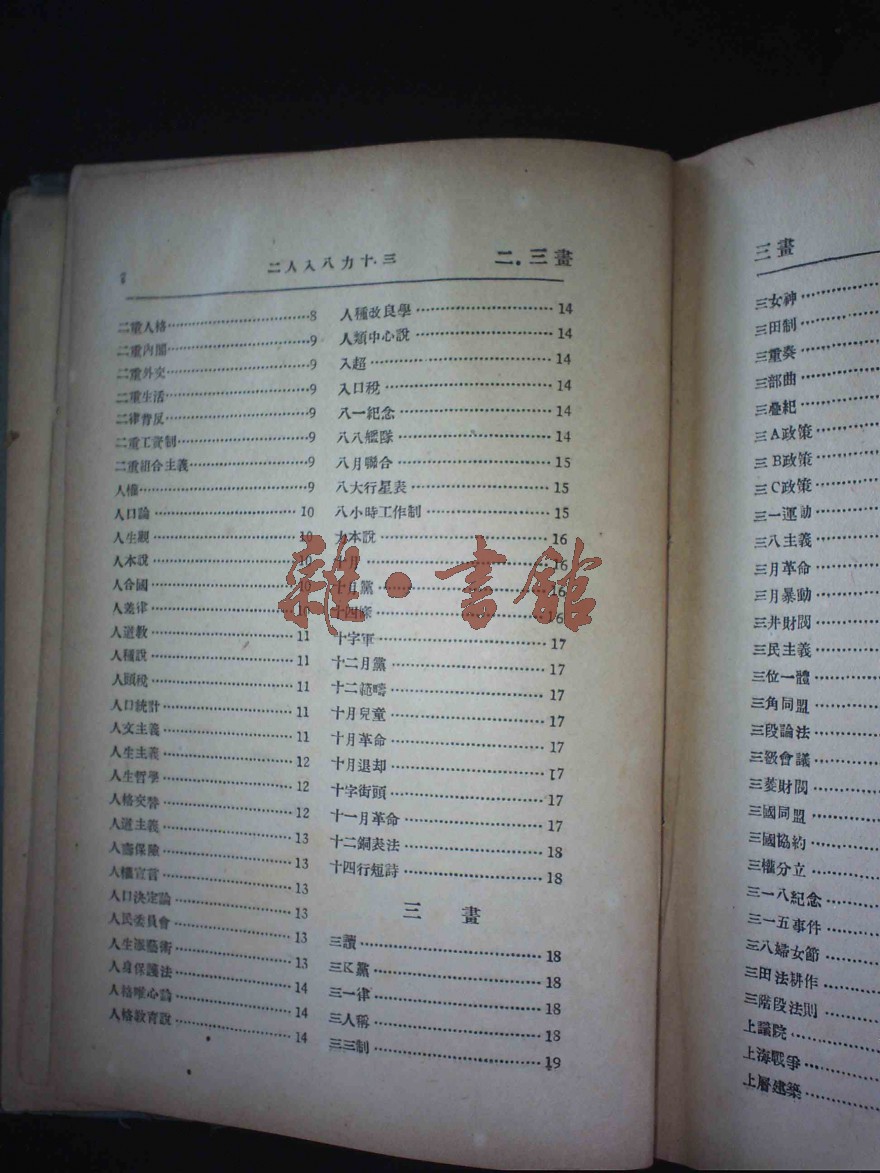 二人入八力十.三 二.三畫
二重人格 8
二重內閣 9
二重外交 9
二重生活 9
二律背反 9
二重工資制 9
二重組合主義 9
人權 9
人口論 10
人生觀 10
人本說 10
人合國 10
人差律 10
人道教 11
人種說 11
人頭稅 11
人口統計 11
人文主義 11
人生主義 12
人生哲學 12
人格交替 12
人道主義 13
人壽保險 13
人權宣言 13
人口決定論 13
人民委員會 13
人生派藝術 13
人身保護法 14
人格唯心論 14
人格教育說 14
人種改良學 14
人類中心說 14
入超 14
入口稅 14
八一紀念 14
八八艦隊 14
八月聯合 15
八大行星表 15
八小時工作制 15
力本說 16
十月 16
十月黨 16
十四條 16
十字軍 17
十二月黨 17
十二範疇 17
十月兒童 17
十月革命 17
十月退却 17
十字街頭 17
十一月革命 17
十二銅表法 18
十四行短詩 18
三 畫
三讀 18
三K黨 18
三一律 18
三人稱 18
三三制 19
雜·書館
三畫
三女神
三田制
三重奏
三部曲
三疊紀
三A政策
三B政策
三C政策
三一運動
三八主義
三月革命
三月暴動
三井財閥
三民主義
三位一體
三角同盟
三段論法
三級會議
三菱財閥
三國同盟
三國協約
三權分立
三一八紀念
三一五事件
三八婦女節
三田法耕作
三階段法則
上議院
上海戰爭
上層建築